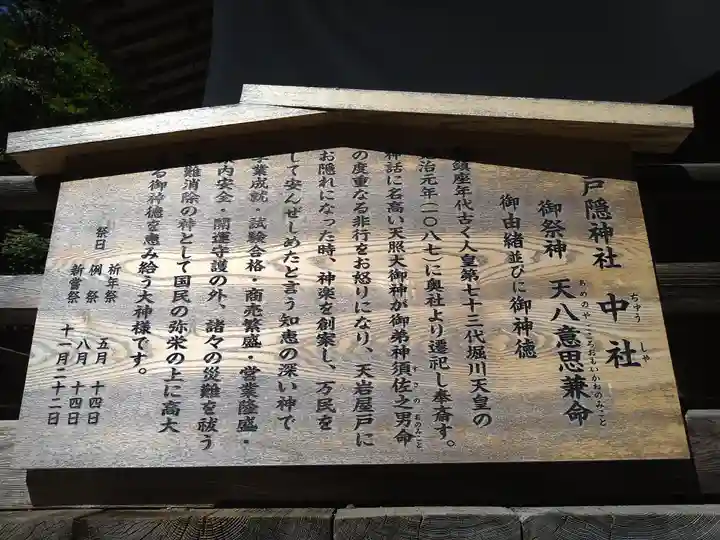 戸隠神社 中社
ちゅうしゃ
御祭神 天八意思兼命
あめのやこころおもいかねのみこと
御由緒並びに御神徳
鎮座年代古く人皇第七十三代堀川天皇の
治元年(一〇八七)に奥社より遷祀し奉斎す。
神話に名高い天照大御神が御弟神須佐之男命
すさのおのみこと
の度重なる非行をお怒りになり、天岩屋戸に
お隠れになった時、神楽を創案し、万民を
して安んぜしめたと言う知恵の深い神で
学業成就・試験合格・商売繁盛・営業隆盛・
内安全・開運守護の外、諸々の災難を祓う
難消除の神として国民の弥栄の上に高大
る御神徳を恵み給う大神様です。
祭日 祈年祭 五月 十四日
例祭 八月 十四日
新嘗祭 十一月二十二日